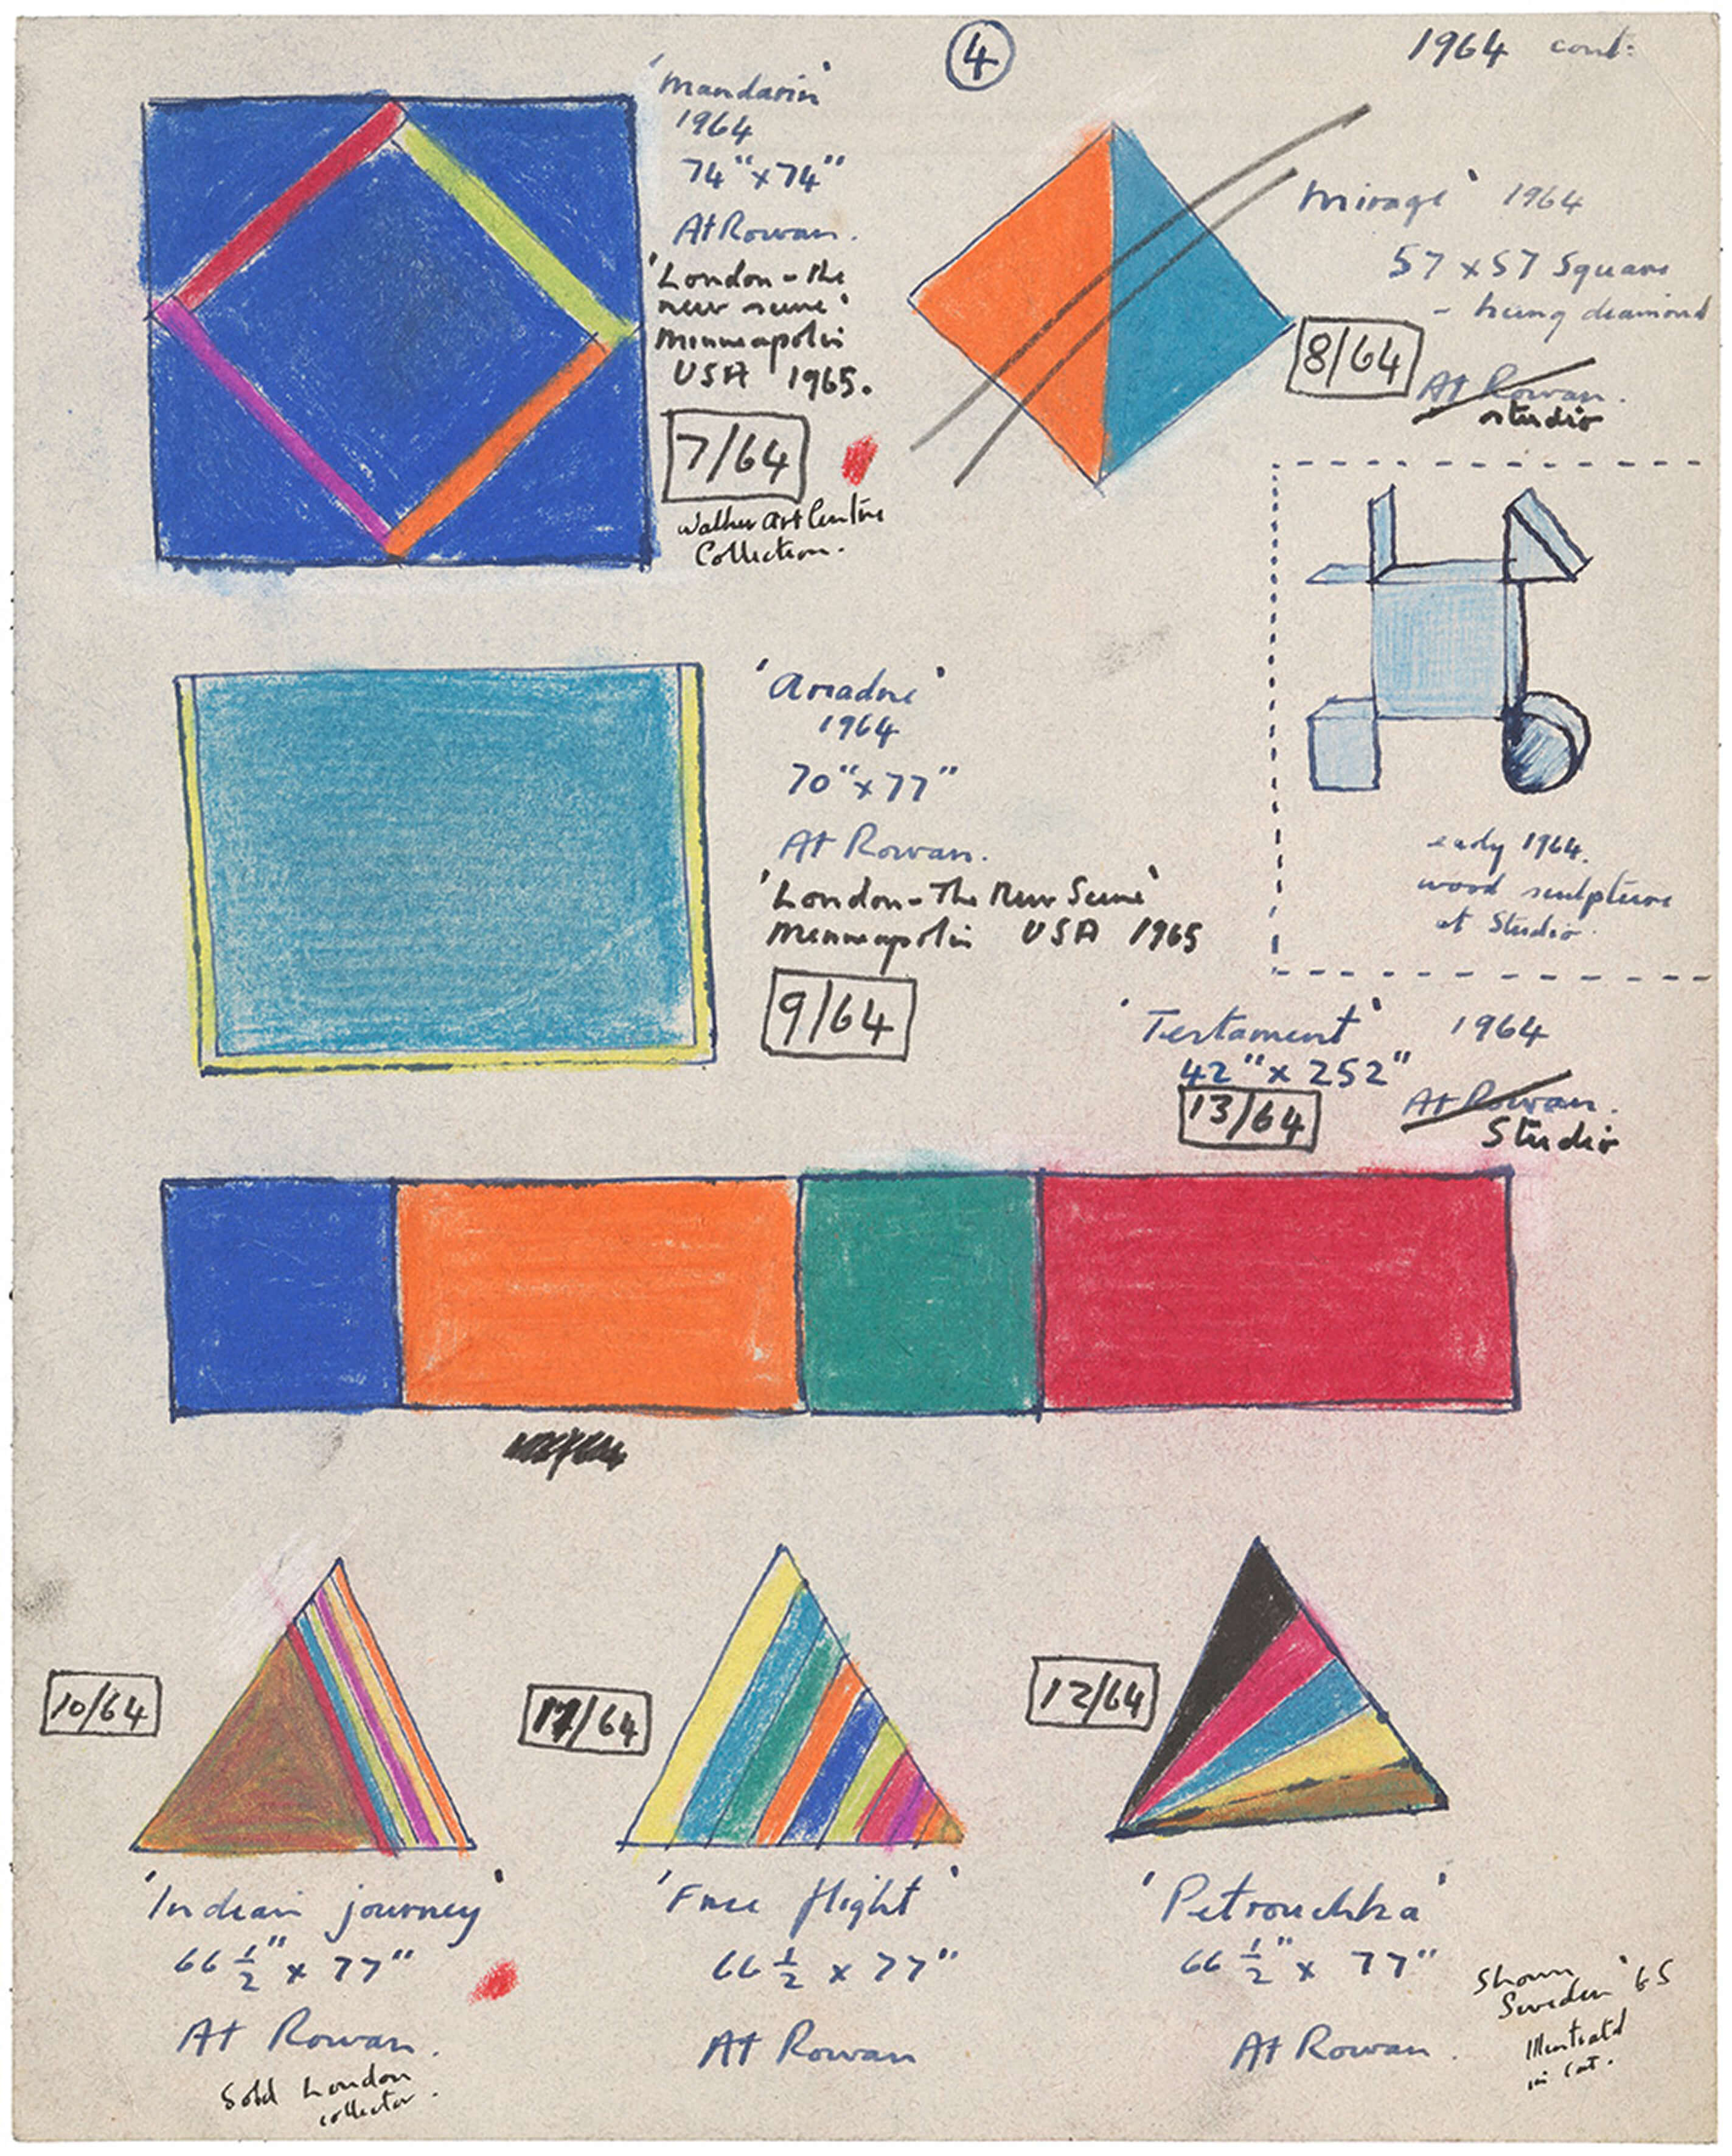 4
1964 cont:
'Mandarin'
1964
74" x 74"
At Rowan.
'London - the
new scene'
Minneapolis
USA 1965.
7/64
Walker Art Centre
Collection.
'Mirage' 1964
57 x 57 Square
- hung diamond
8/64
At Rowan.
studio
early 1964.
wood sculpture
at Studio.
'Ariadne'
1964
70" x 77"
At Rowan.
'London - The New Scene'
Minneapolis USA 1965
9/64
'Testament' 1964
42" x 252"
13/64
At Rowan.
Studio
10/64
'Indian journey'
66 1/2" x 77"
At Rowan.
Sold London
collector.
/64
'Free flight'
66 1/2 x 77"
At Rowan
12/64
'Petrouchka'
66 1/2" x 77"
At Rowan.
Shown
Sweden '65
Illustrated
in cat.